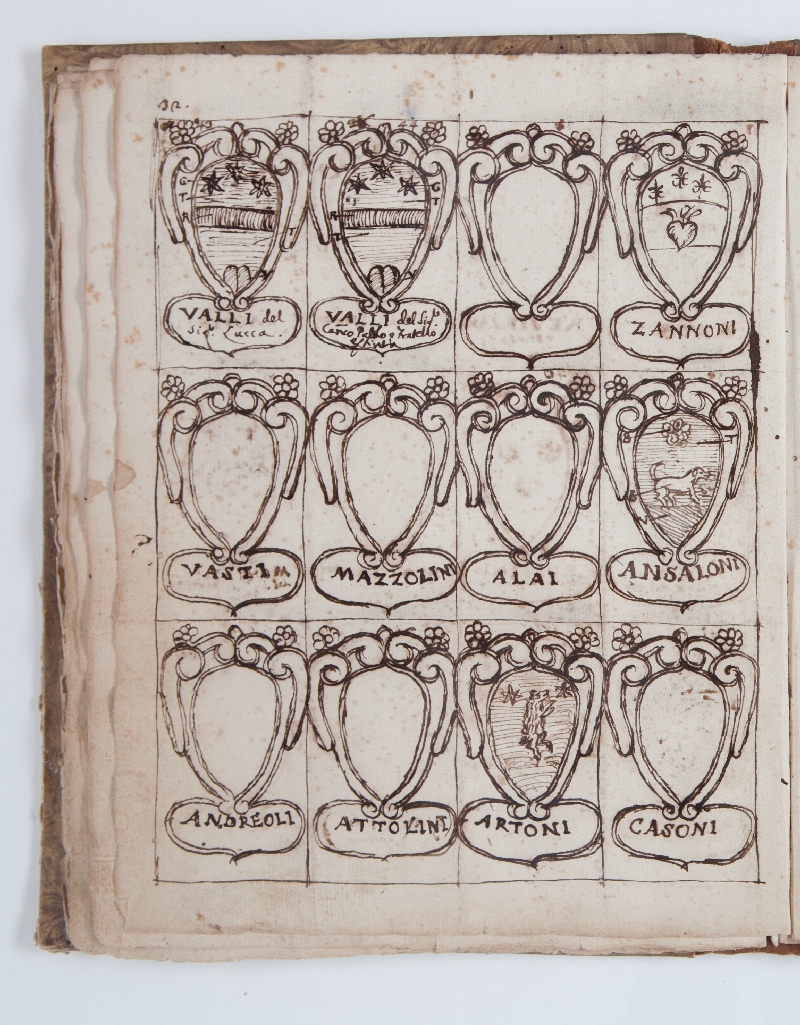 32.
G
T
R
T
VALLI del
Sig.r Lucca.
G
T
R
T
VALLI del Sig.r
Can.co Paolo e Fratello
ZANNONI
VASTI
MAZZOLINI
ALAI
B
T
ANSALONI
ANDREOLI
ATTOLINI
ARTONI
CASONI